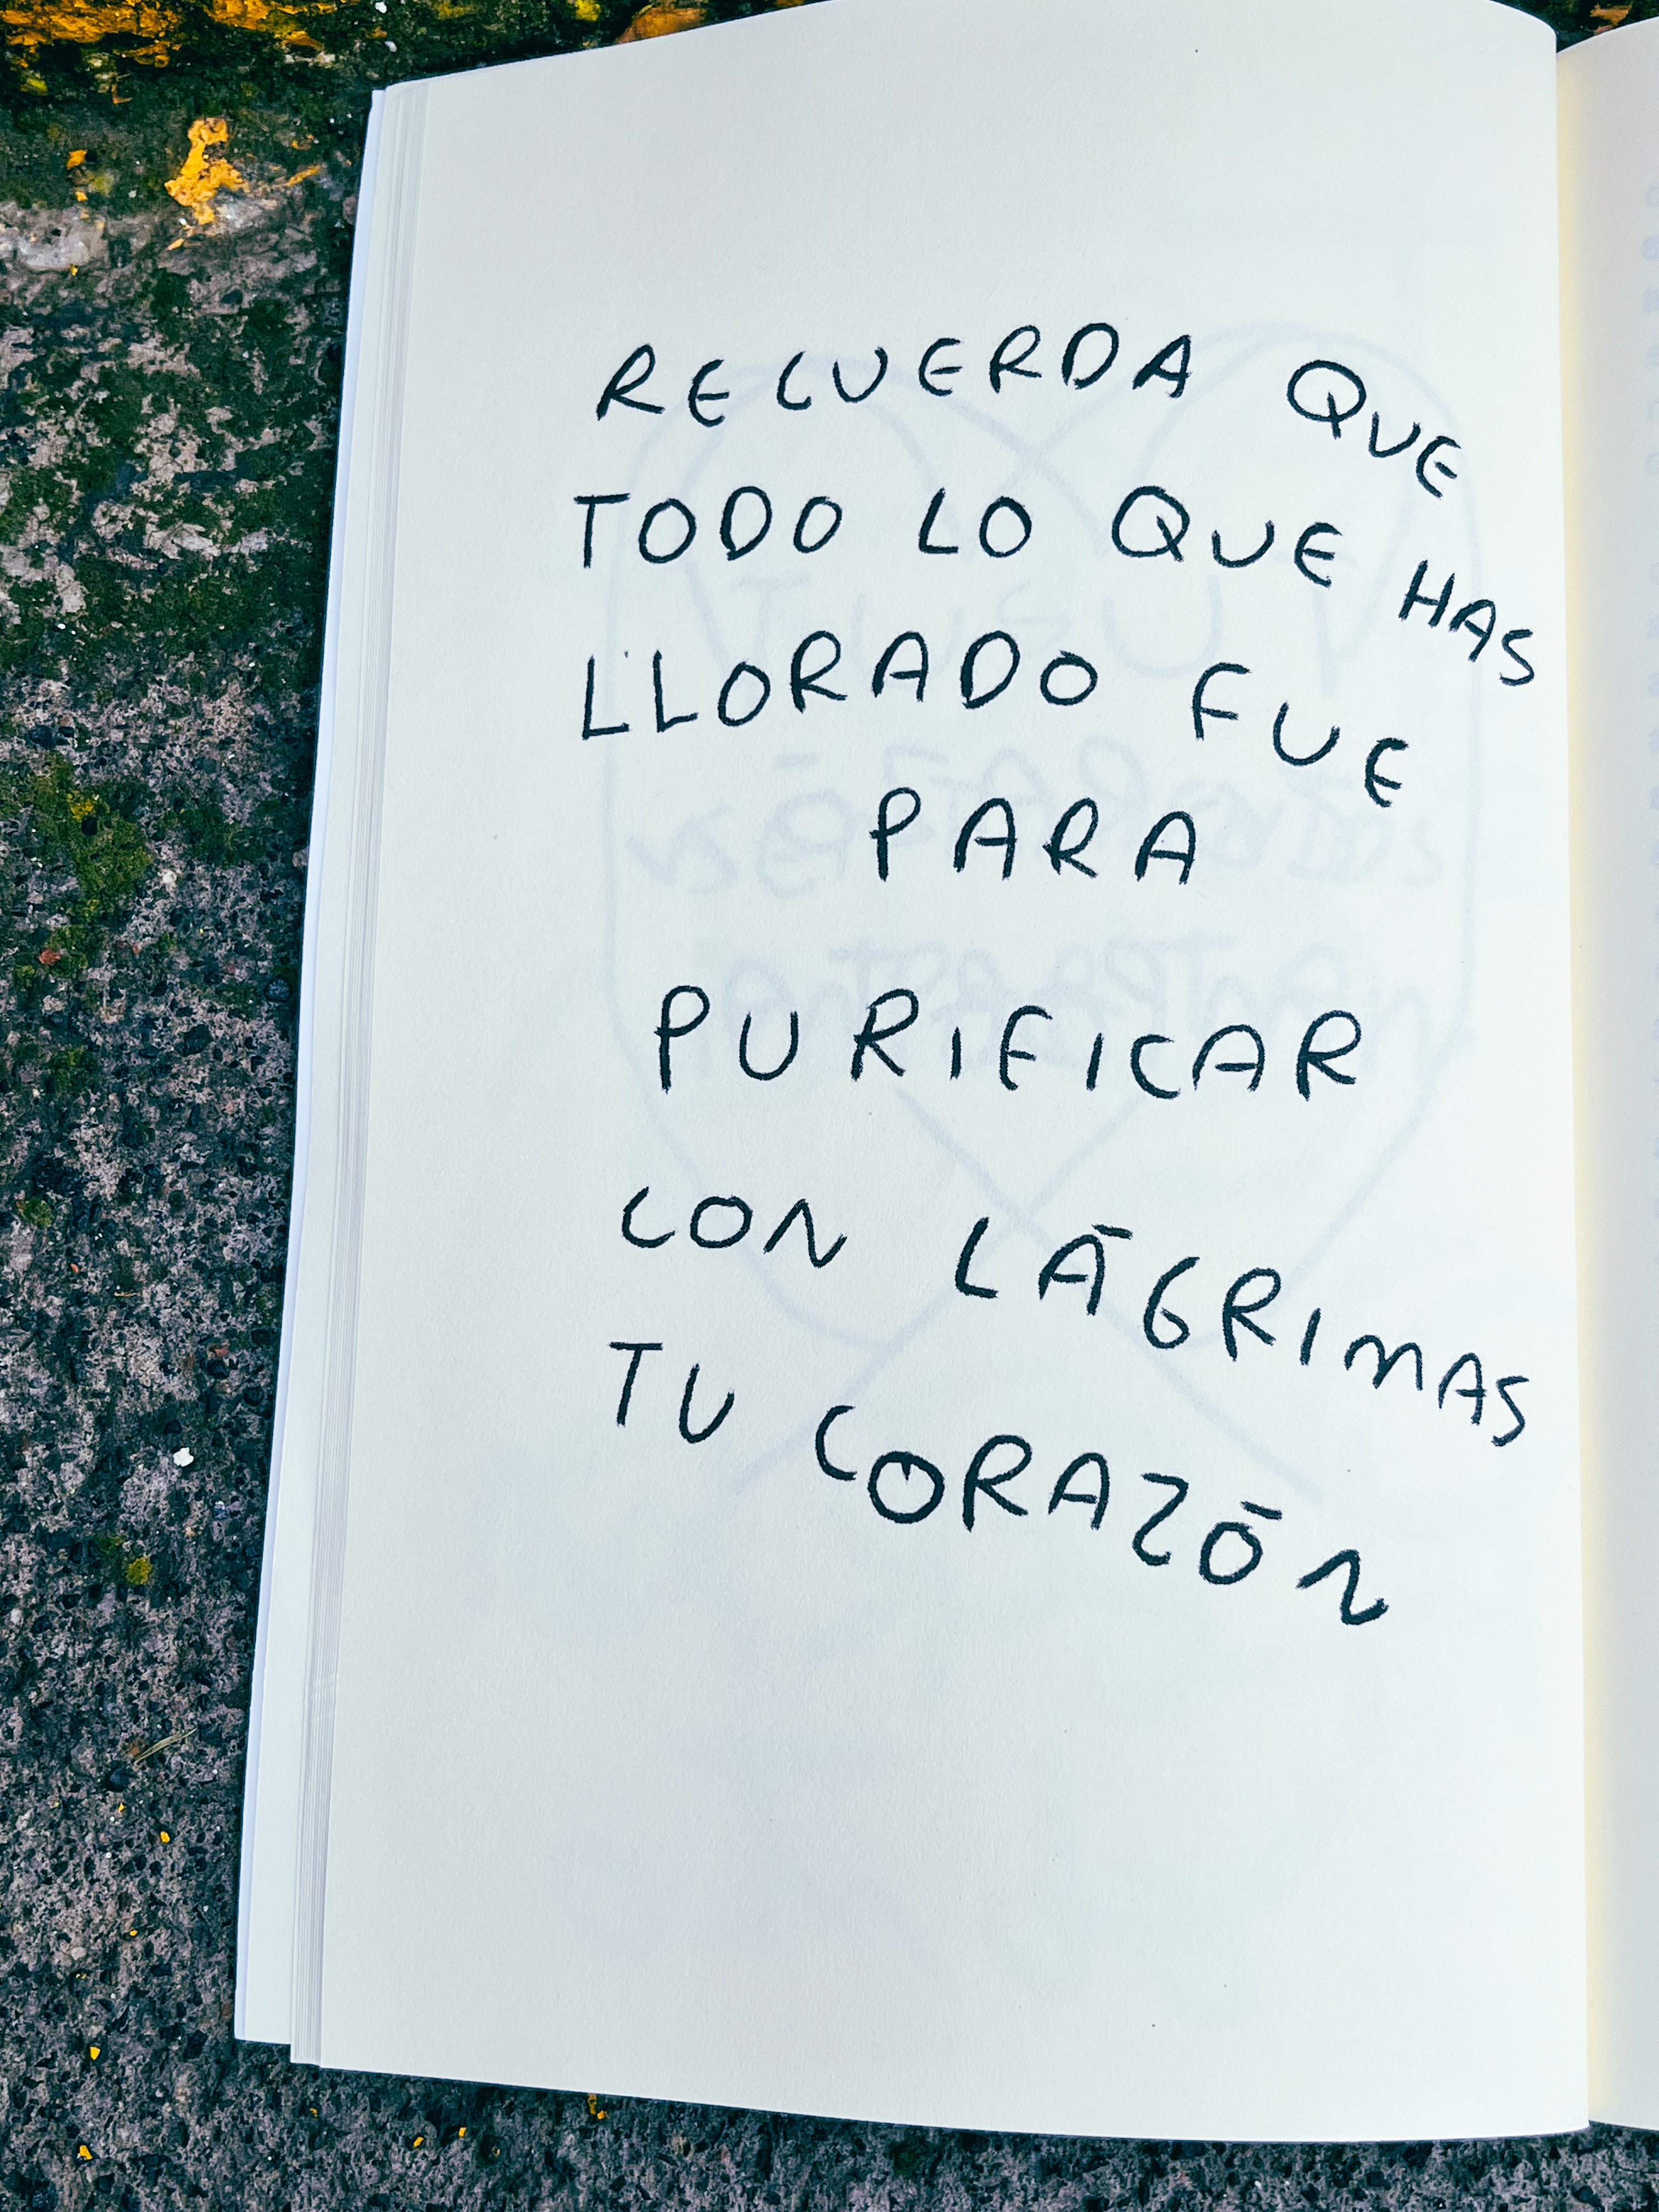 RECUERDA QUE
TODO LO QUE HAS
LLORADO FUE
PARA
PURIFICAR
CON LÁGRIMAS
TU CORAZÓN